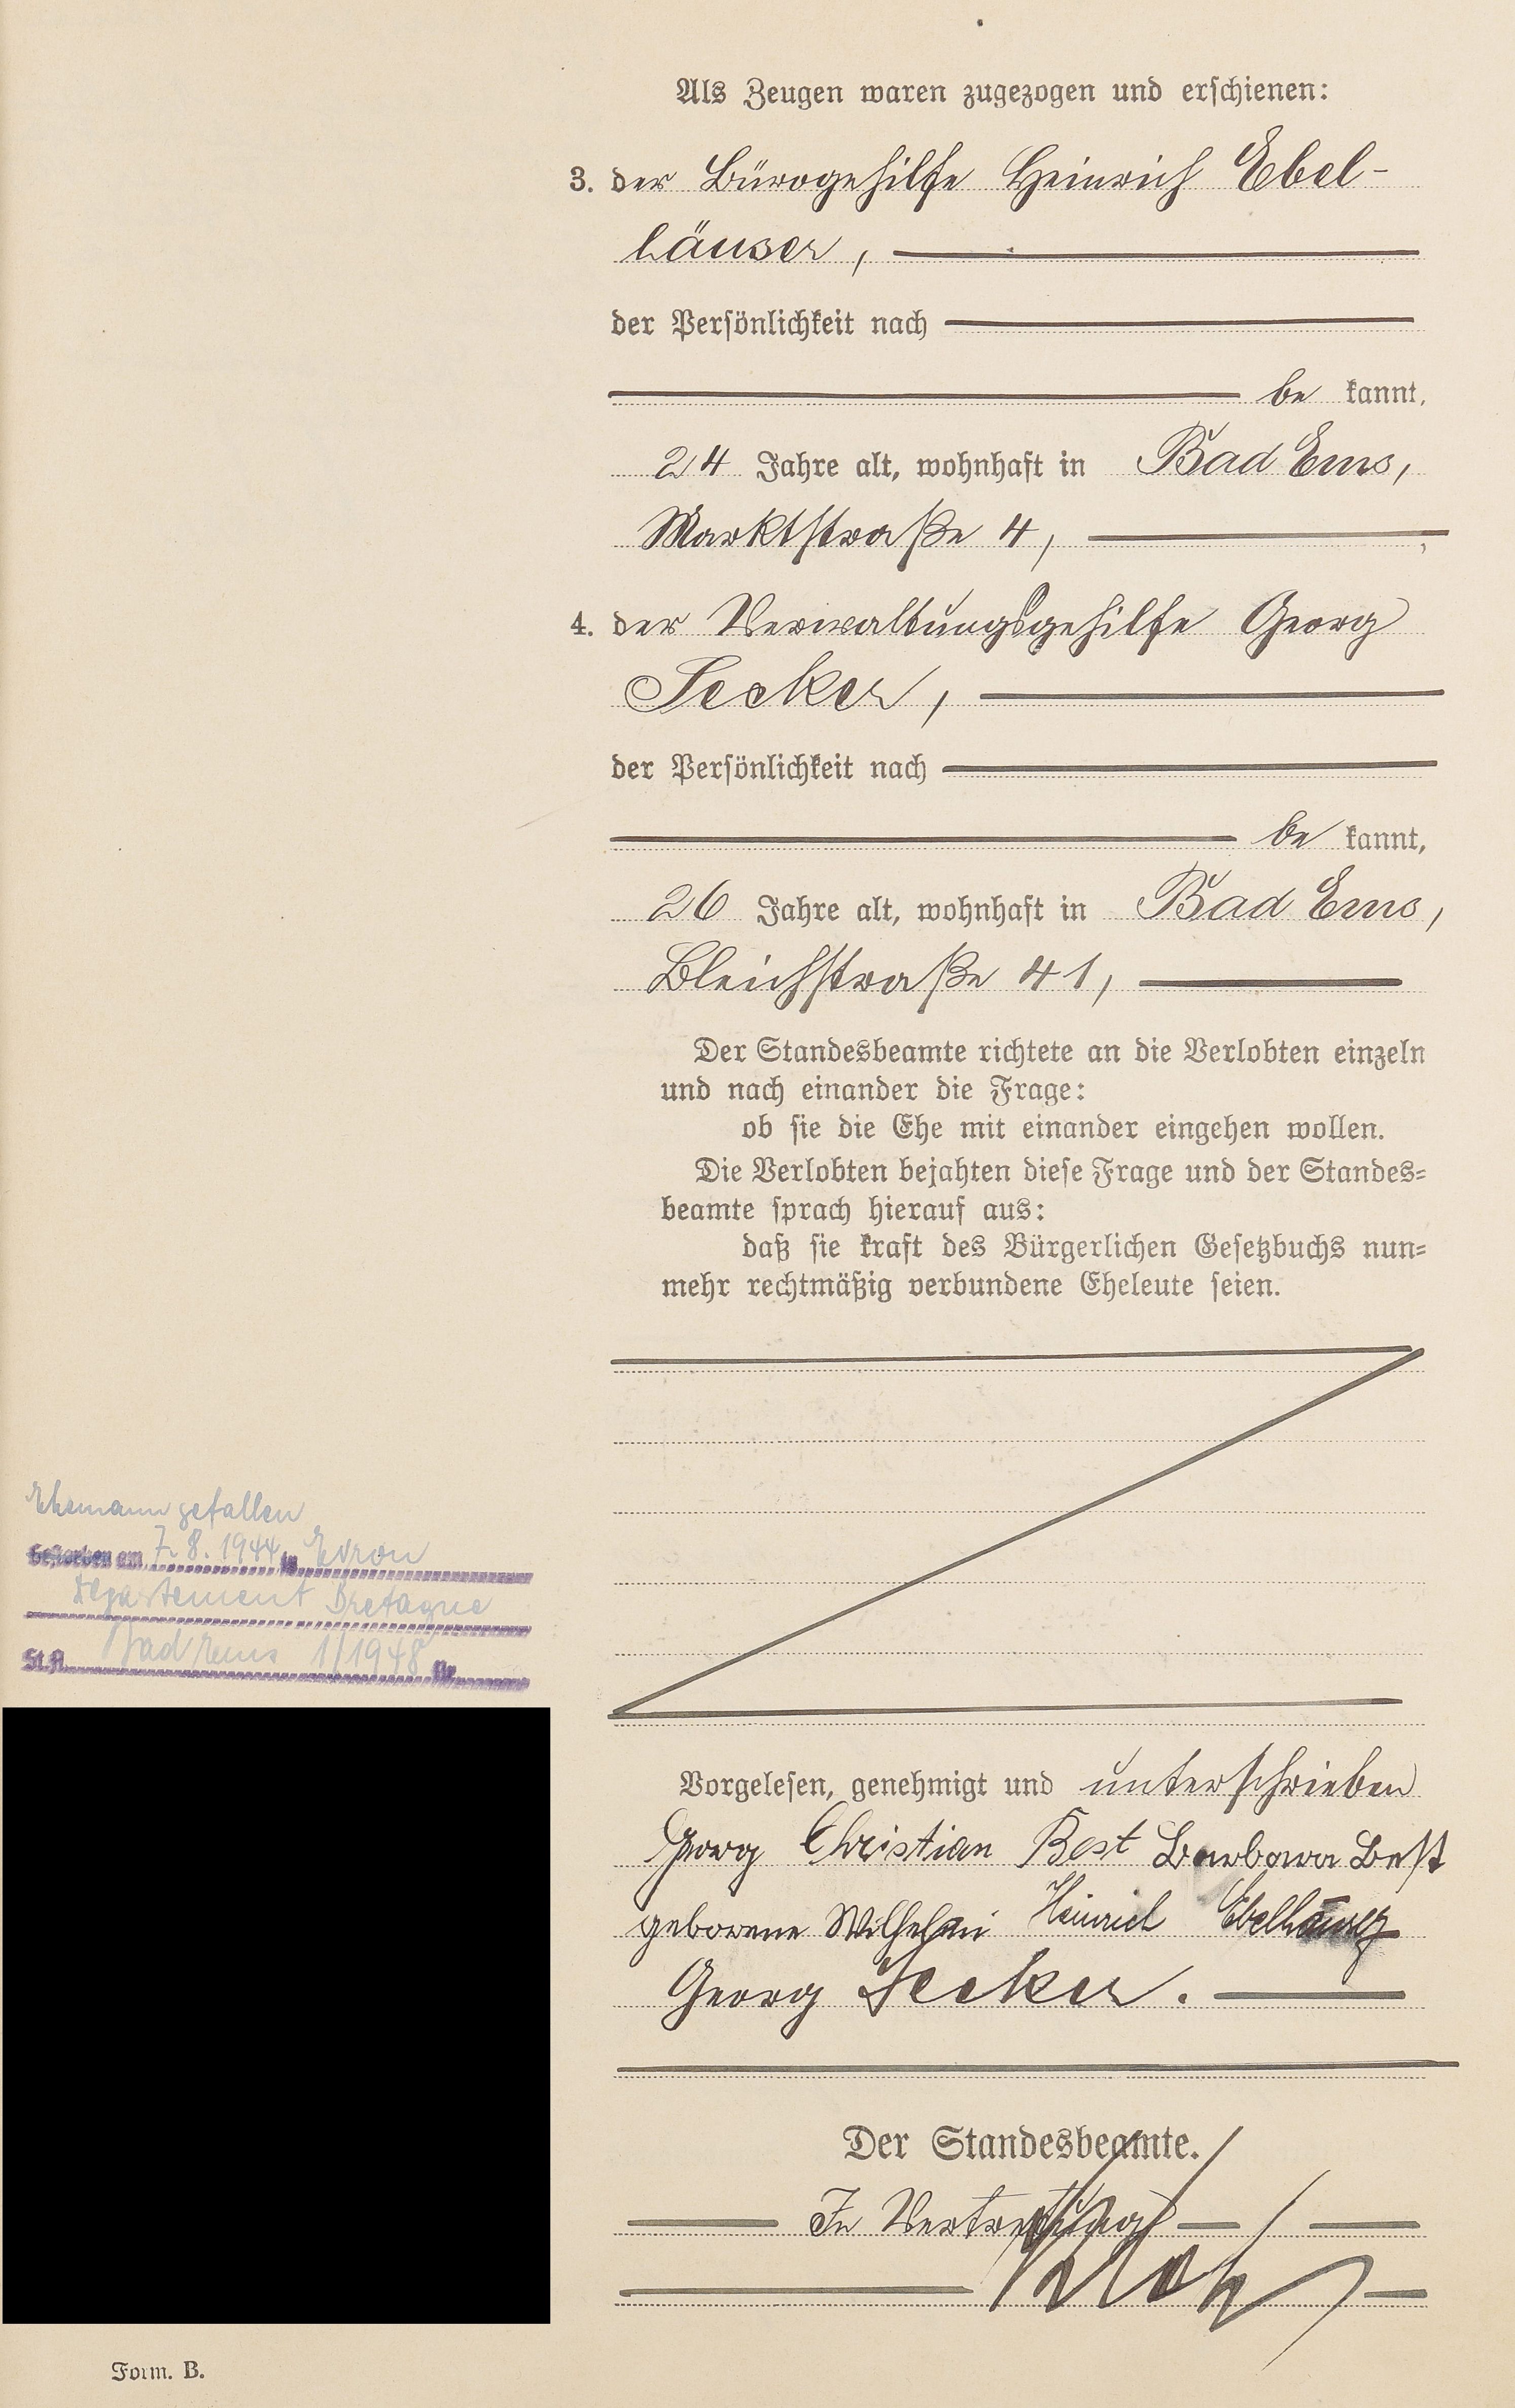 Als Zeugen waren zugezogen und erschienen:
3. der Bürogehilfe Heinrich Ebel-
häuser,
der Persönlichkeit nach
be kannt,
24 Jahre alt, wohnhaft in Bad Ems,
Marktstraße 4,
4. der Verwaltungsgehilfe Georg
Secker,
der Persönlichkeit nach
be kannt,
26 Jahre alt, wohnhaft in Bad Ems,
Bleichstraße 41,
Der Standesbeamte richtete an die Verlobten einzeln
und nach einander die Frage:
ob sie die Ehe mit einander eingehen wollen.
Die Verlobten bejahten diese Frage und der Standes=
beamte sprach hierauf aus:
daß sie kraft des Bürgerlichen Gesetzbuchs nun=
mehr rechtmäßig verbundene Eheleute seien.
Ehemann gefallen
Gestorben am 7.8.1944 in Evron
Departement Bretagne
St.A. Bad Ems 1/1948 Nr.
Vorgelesen, genehmigt und unterschrieben
Georg Christian Best Barbara Best
geborene Wilhelmi Heinrich Ebelhäuser
Georg Secker.
Der Standesbeamte.
In Vertretung
Form. B.